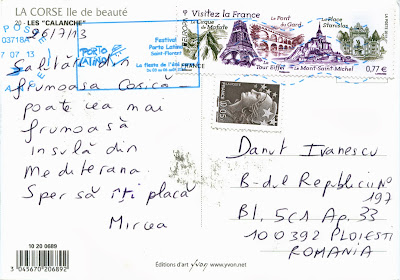 LA CORSE Ile de beauté
20 - LES "CALANCHE"
26/7/13
Salutări din
frumoasa Corsică -
poate cea mai
frumoasă
insulă din
Mediterana.
Sper să îți placă
Mircea
10 20 0689
3 045670 206892
Editions d'art yvon www.yvon.net
03718A
07 07 13
PORTO
LATINO
Festival
Porto Latino
Saint-Florent
La fiesta de l'été
Visitez la France
Le Cirque
de Mafate
Le Pont du
Gard
La Place
Stanislas
Tour Eiffel
Le Mont-Saint-Michel
FRANCE
0,77 €
Danut Ivanescu
B-dul Republicii N°
197
Bl. 5C1 Ap. 33
100392 PLOIESTI
ROMANIA